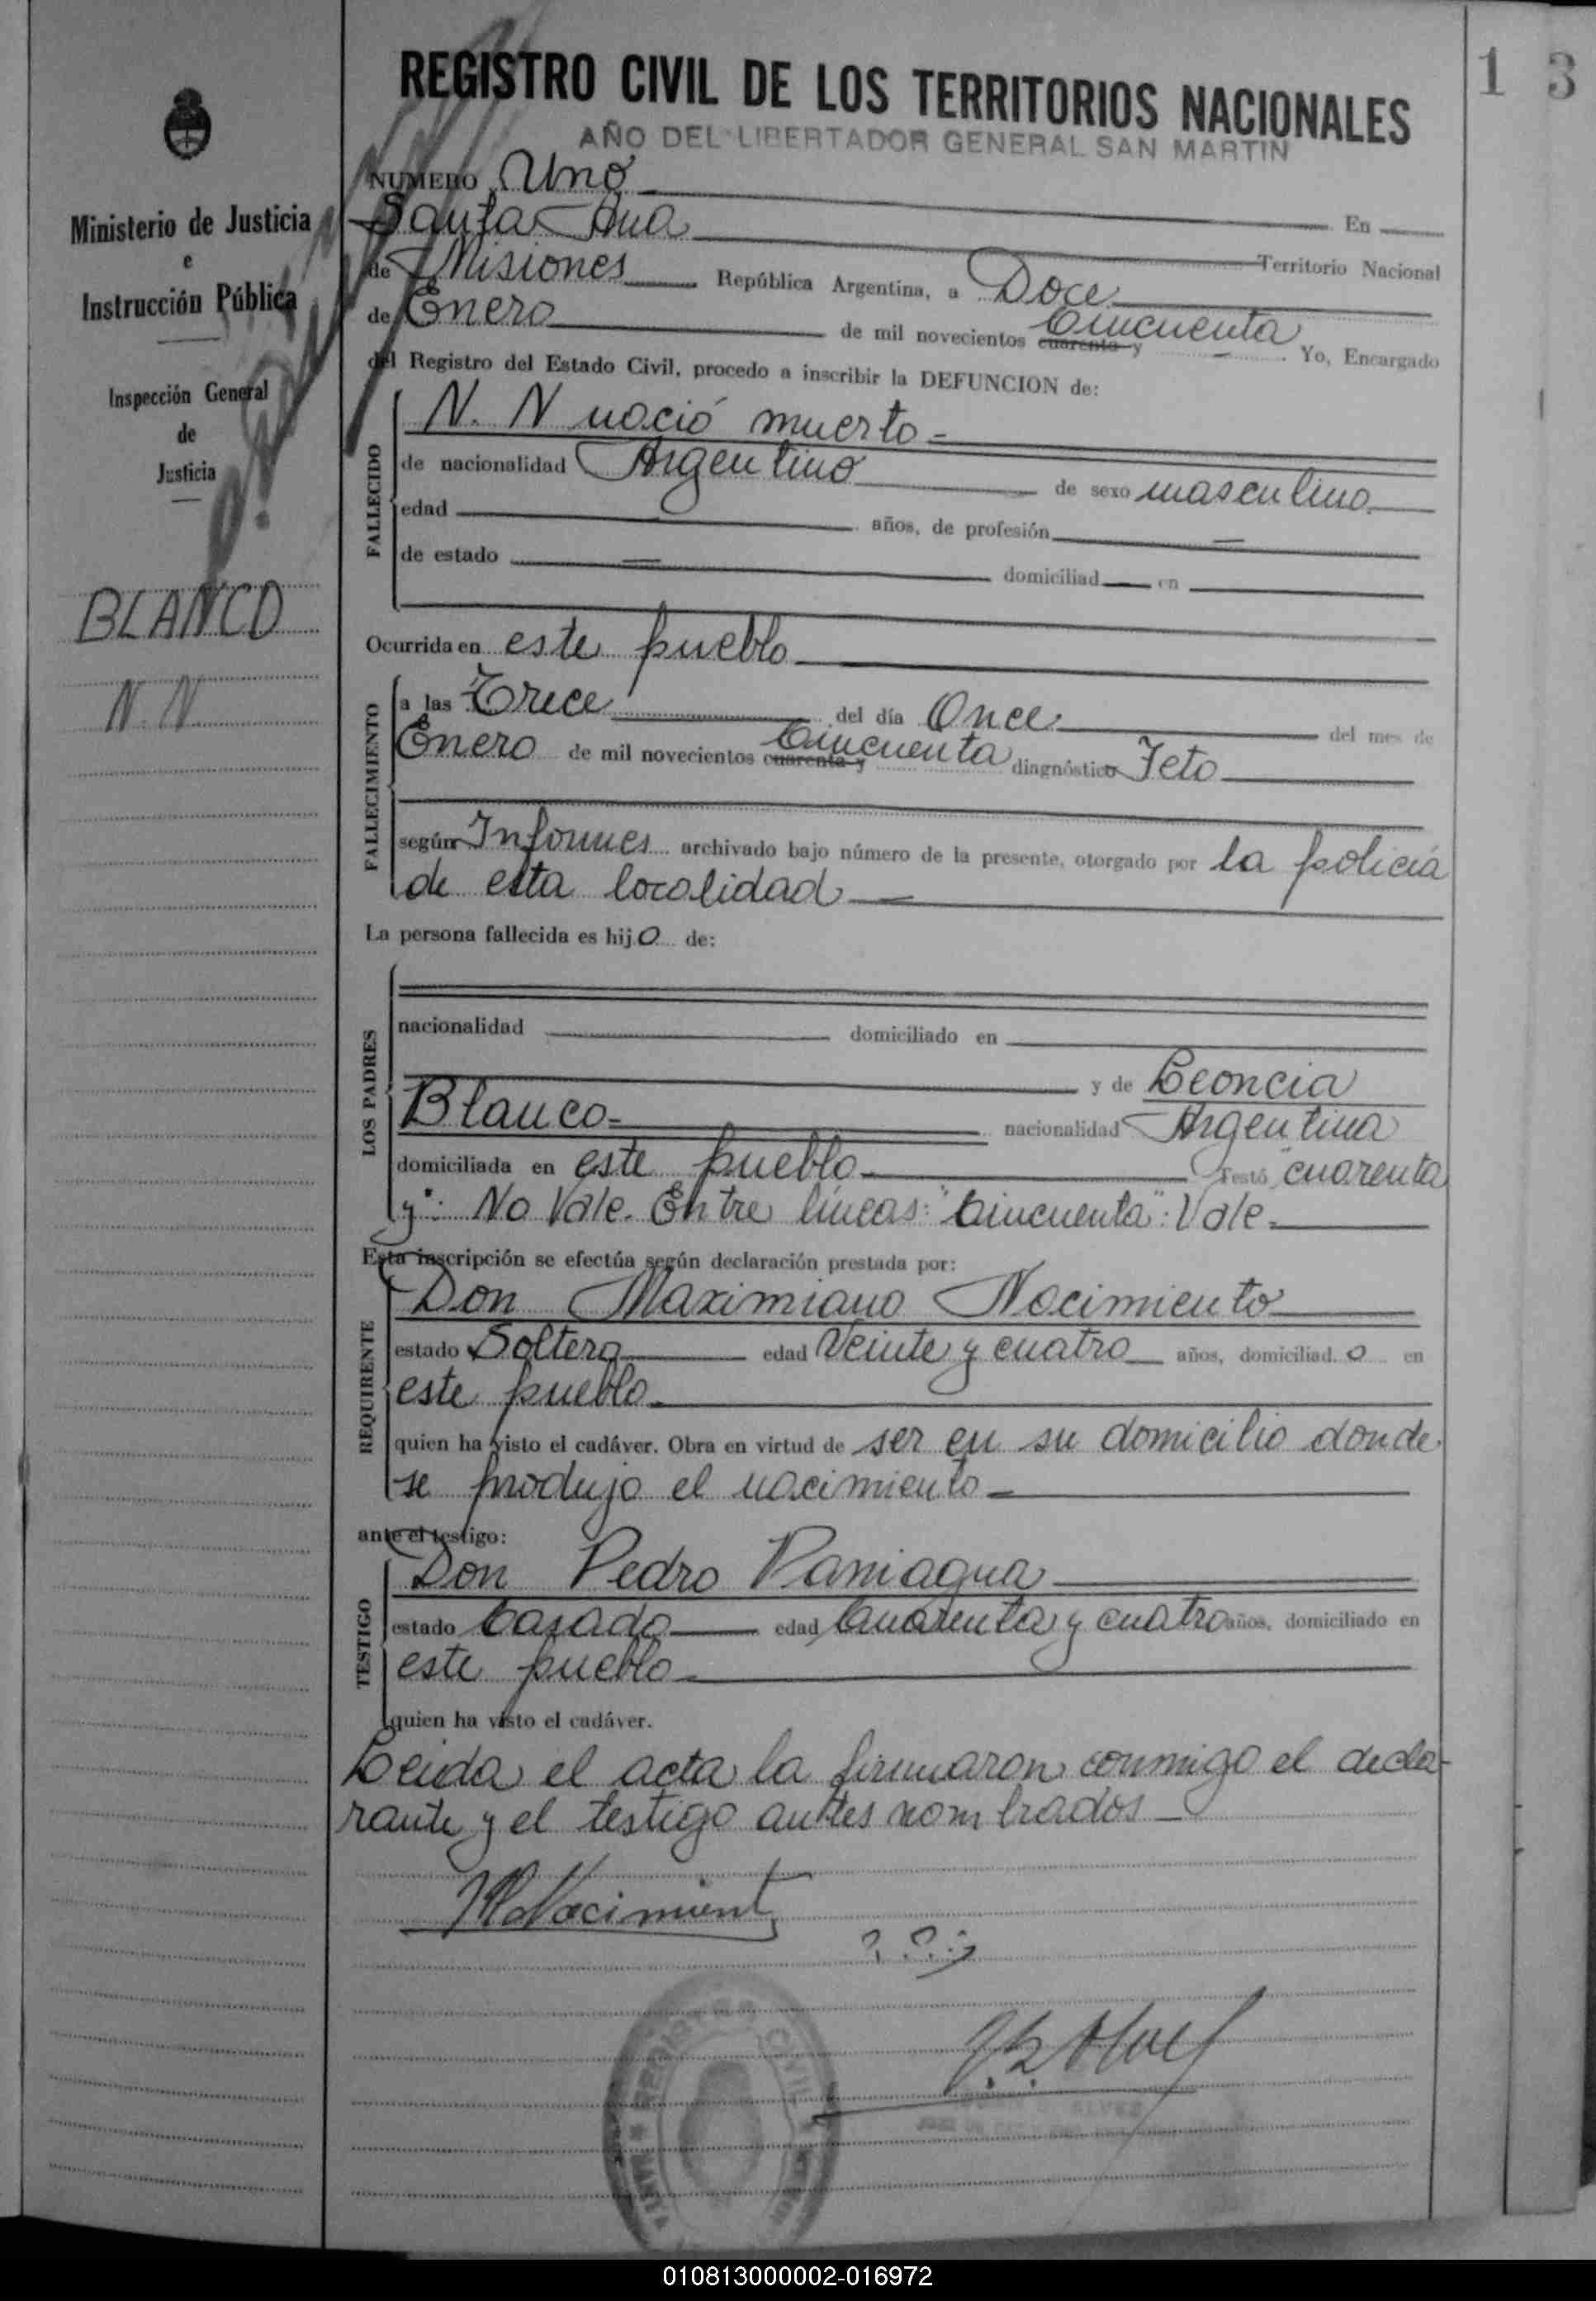 REGISTRO CIVIL DE LOS TERRITORIOS NACIONALES
1 3
AÑO DEL LIBERTADOR GENERAL SAN MARTIN
Ministerio de Justicia
e
Instrucción Pública
Inspección General
de
Justicia
BLANCO
N. N
NUMERO Uno En
Santa Ana Territorio Nacional
de Misiones República Argentina, a Doce
de Enero de mil novecientos cuarenta y Cincuenta Yo, Encargado
del Registro del Estado Civil, procedo a inscribir la DEFUNCION de:
FALLECIDO
N. N nació muerto
de nacionalidad Argentino de sexo masculino
edad años, de profesión
de estado domiciliad en
Ocurrida en este pueblo
FALLECIMIENTO
a las Trece del día Once del mes de
Enero de mil novecientos cuarenta y Cincuenta diagnóstico Feto
según Informes archivado bajo número de la presente, otorgado por la policía
de esta localidad
La persona fallecida es hijo de:
LOS PADRES
nacionalidad domiciliado en
y de Leoncia
Blanco nacionalidad Argentina
domiciliada en este pueblo Testó "cuarenta
y": No Vale. Entre líneas: "Cincuenta": Vale.
Esta inscripción se efectúa según declaración prestada por:
REQUIRENTE
Don Maximiano Nacimiento
estado Soltero edad Veinte y cuatro años, domiciliado en
este pueblo
quien ha visto el cadáver. Obra en virtud de ser en su domicilio donde
se produjo el nacimiento
ante el testigo:
TESTIGO
Don Pedro Paniagua
estado Casado edad Cuarenta y cuatro años, domiciliado en
este pueblo
quien ha visto el cadáver.
Leída el acta la firmaron conmigo el decla-
rante y el testigo antes nombrados
M Nacimient
REGISTRO CIVIL
ALVES
010813000002-016972